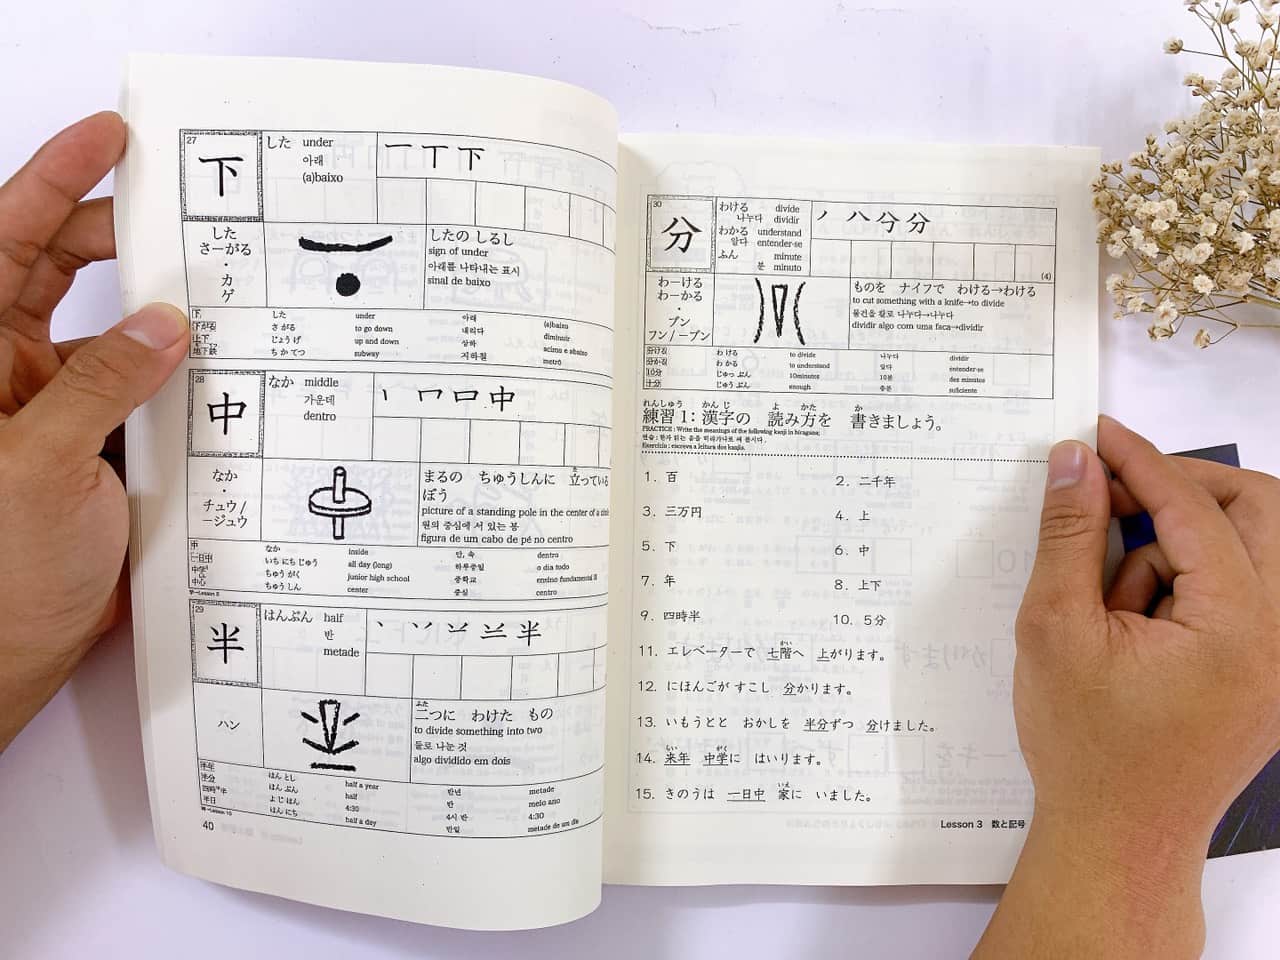 27
下
した under
아래
(a)baixo
一 丅 下
した
さーがる
・
カ
ゲ
したの しるし
sign of under
아래를 나타내는 표시
sinal de baixo
下 した under 아래 (a)baixo
下がる さ がる to go down 내리다 diminuir
上下 じょう げ up and down 상하 acima e abaixo
地下鉄 ちか てつ subway 지하철 metrô
28
中
なか middle
가운데
dentro
丨 冂 口 中
なか
・
チュウ/
ージュウ
まるの ちゅうしんに 立っている
ぼう
picture of a standing pole in the center of a
원의 중심에 서 있는 봉
figura de um cabo de pé no centro
中 なか inside 안, 속 dentro
一日中 いち にち じゅう all day (long) 하루종일 o dia todo
中学 ちゅう がく junior high school 중학교 ensino fundamental II
中心 ちゅう しん center 중심 centro
29
半
はんぶん half
반
metade
半
ハン
二つに わけた もの
to divide something into two
둘로 나눈 것
algo dividido em dois
半年 はん とし half a year 반년 metade
半分 はん ぶん half 반 meio ano
四時半 よ じ はん 4:30 4시 반 4:30
半日 はん にち half a day 반일 metade de um dia
40
30
分
わける divide
나누다 dividir
わかる understand
알다 entender-se
ぶん minute
분 minuto
ノ 八 分 分
(4)
わーける
わーかる
・
ブン
フン/ープン
ものを ナイフで わける→わける
to cut something with a knife→to divide
물건을 칼로 나누다→나누다
dividir algo com uma faca→dividir
分ける わ ける to divide 나누다 dividir
分かる わ かる to understand 알다 entender-se
10分 じゅっ ぷん 10minutes 10분 dez minutos
十分 じゅう ぶん enough 충분 suficiente
れんしゅう かんじ よ かた か
練習 1: 漢字の 読み方を 書きましょう。
PRACTICE : Write the meanings of the following kanji in hiragana;
연습 : 한자 읽는 음을 히라가나로 써 봅시다.
Exercício : escreva a leitura dos kanjis.
1. 百 2. 二千年
3. 三万円 4. 上
5. 下 6. 中
7. 年 8. 上下
9. 四時半 10. 5分
11. エレベーターで 七階へ 上がります。
12. にほんごが すこし 分かります。
13. いもうとと おかしを 半分ずつ 分けました。
14. 来年 中学に はいります。
15. きのうは 一日中 家に いました。
Lesson 3 数と記号